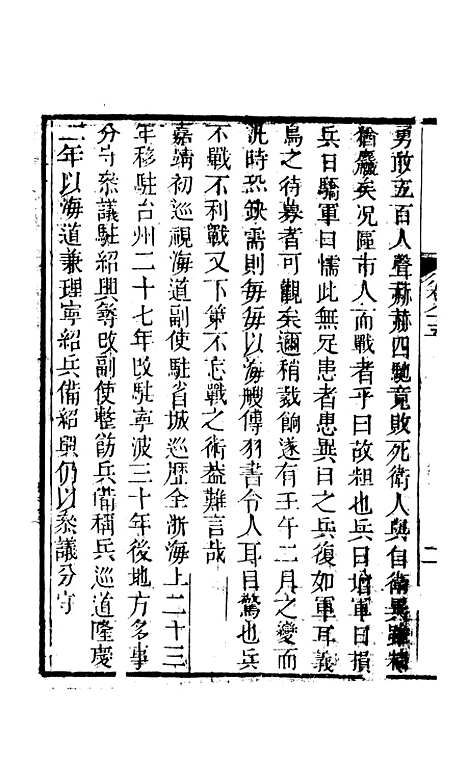 勇敢五百人聲赫赫四馳竟敗死衛人與自衛異雖精
猶癈矣况䧢市人而戰者乎曰故粗也兵日增軍日損
兵日驕軍日懦此無足患者患異日之兵復如軍耳義
烏之待募者可觀矣邇稍裁餉遂有壬午二月之變而
汛時恐缺需則每每以海艘傳羽書令人耳目驚也兵
不戰不利戰又下第不忘戰之術益難言哉
嘉靖初巡視海道副使駐省城巡歷全浙海上二十三
年移駐台州二十七年改駐寧波三十年後地方多事
分守叅議駐紹興尋改副使整飭兵備稱兵巡道隆慶
二年以海道兼理寧紹兵備紹興仍以叅議分守
卷之五
二